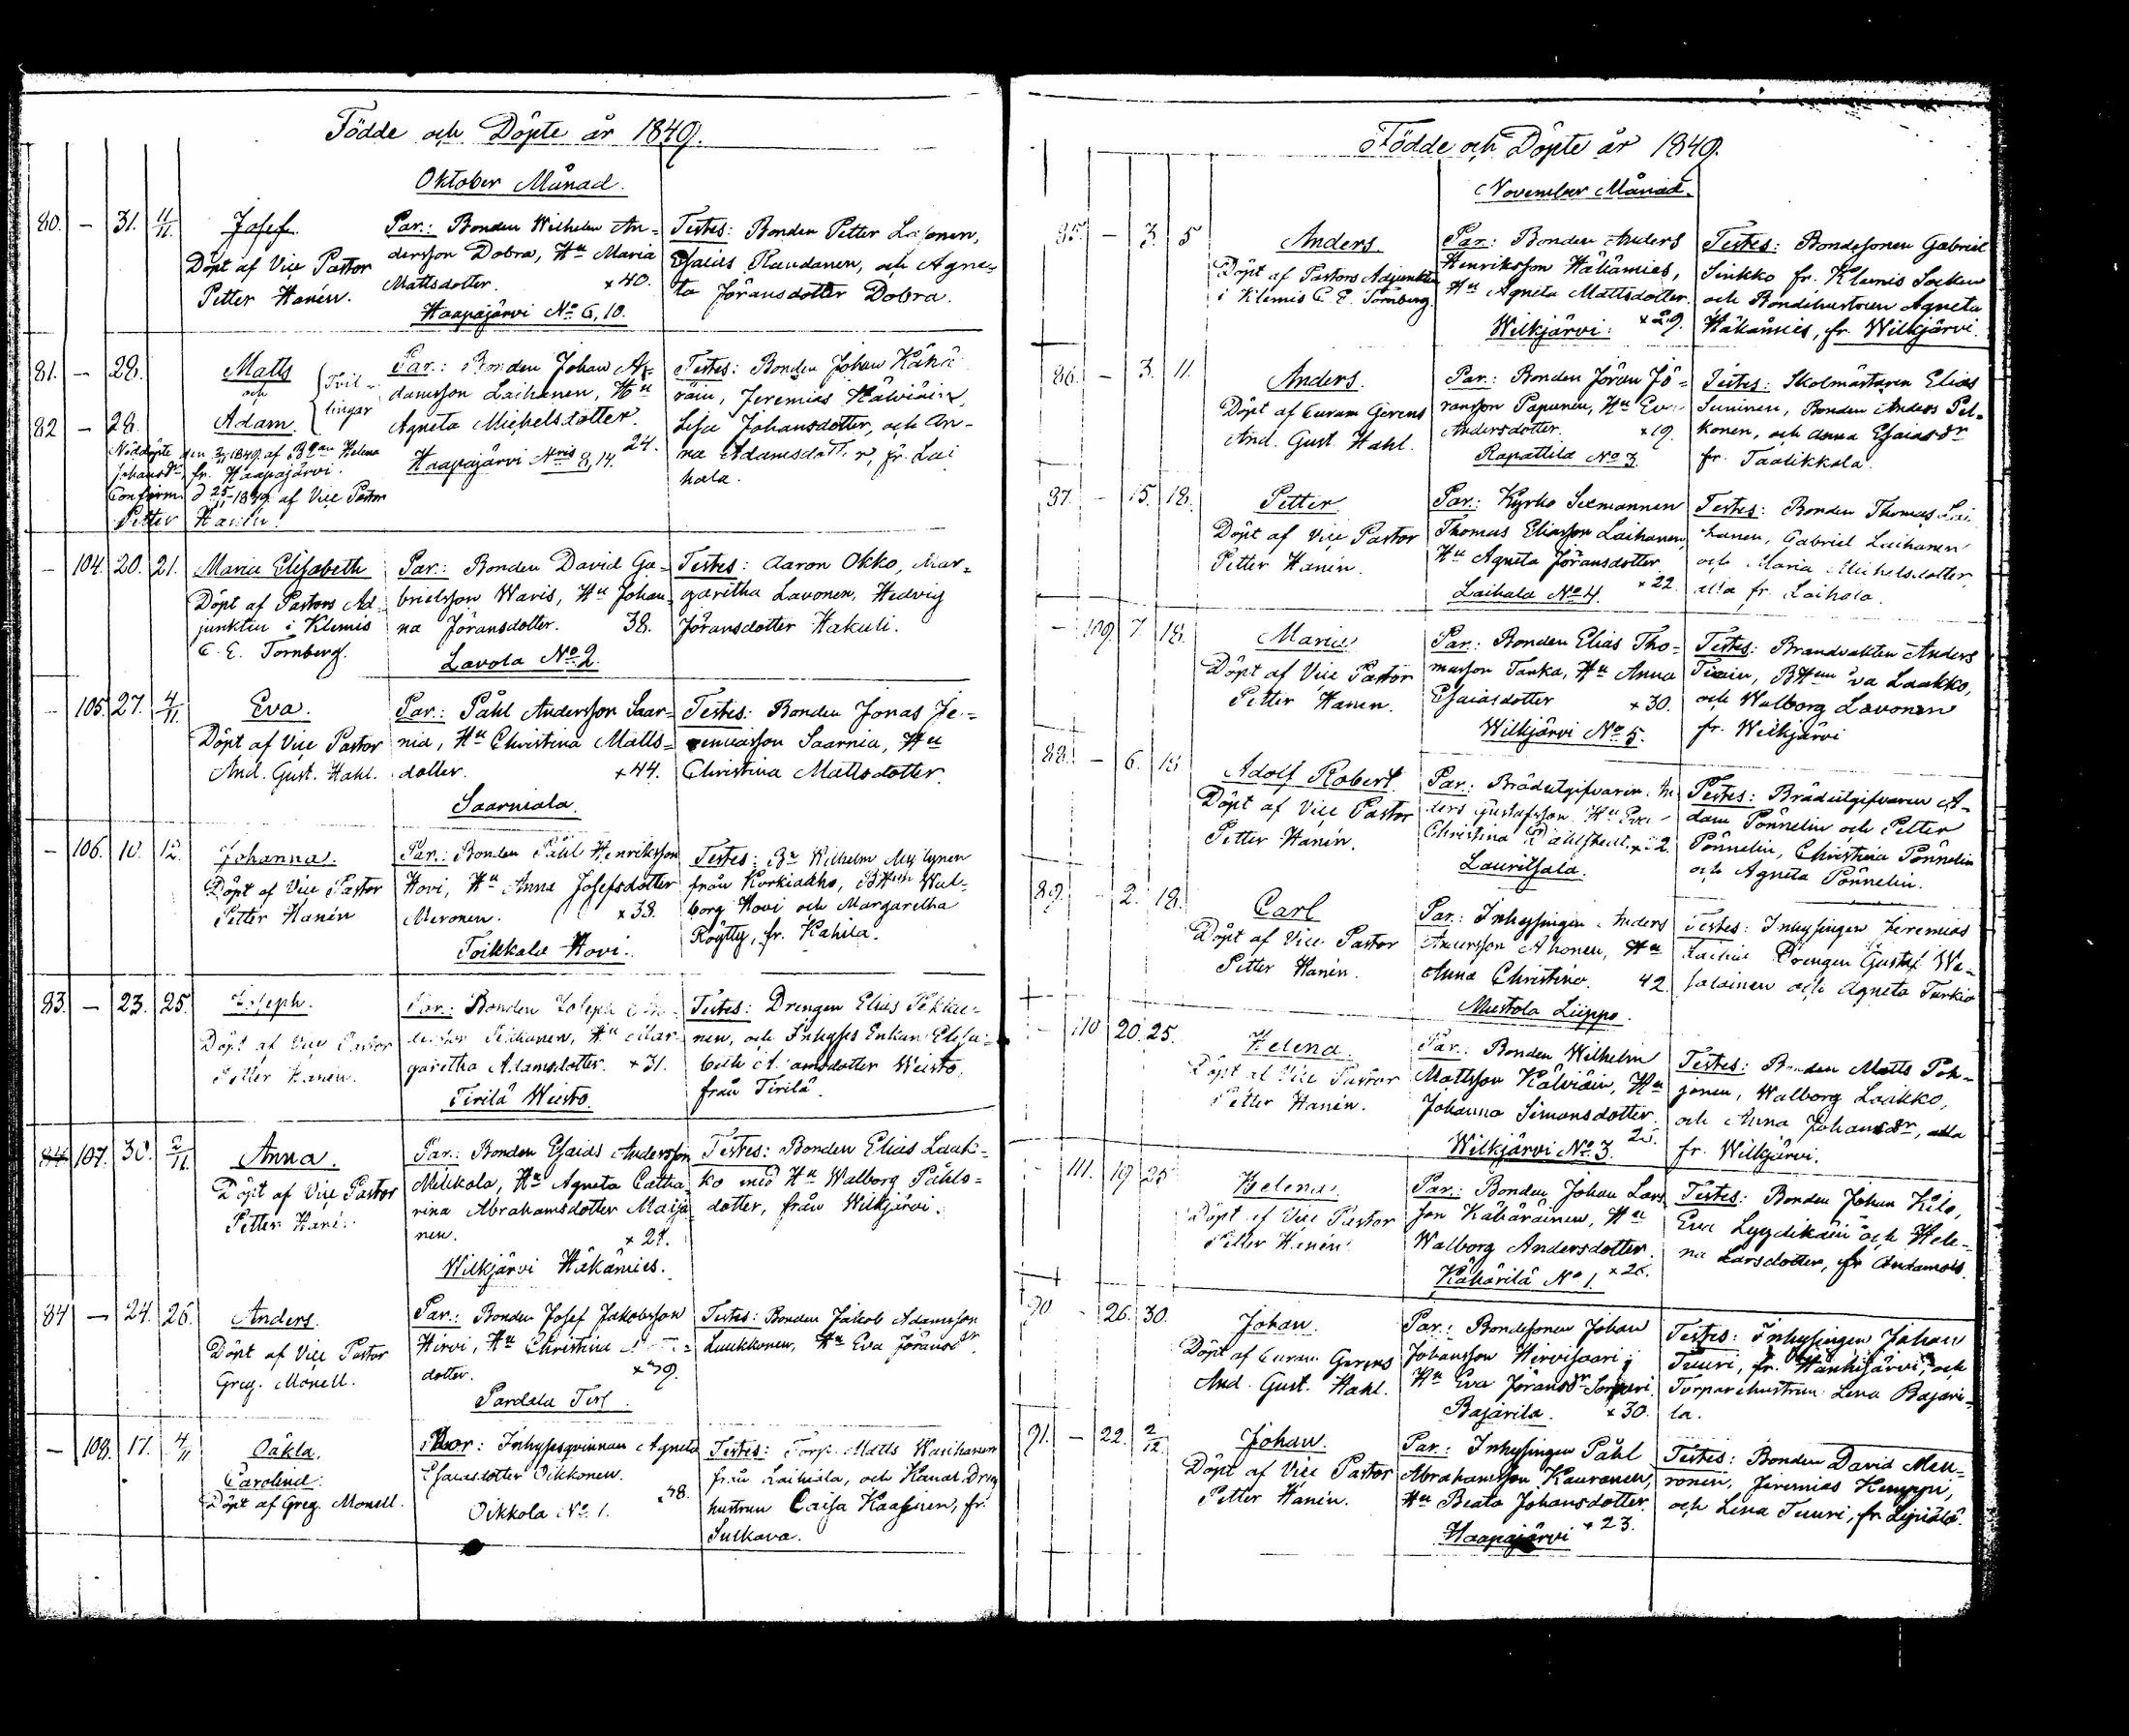 Födde och Döpte år 1849.
Oktober Månad.
80. — 31. 11/11. Josef. Par.: Bonden Wilhelm An= Testes: Bonden Petter
Döpt af Vice Pastor dersson Dobra, Hu Maria Esaias Raudanen, och Agne=
Petter Hanén. Mattsdotter. x40. ta Jöransdotter Dobra.
Haapajärvi No 6, 10.
81. — 28. Matts Par.: Bonden Johan A= Testes: Bonden Johan Kähä
och Tvil= damsson Laihanen, Hu räin, Jeremias Kälviäin,
82 — 28. Adam. lingar Agneta Michelsdotter. Lisa Johansdotter, och An=
24. na Adamsdotter, fr. Lai
Haapajärvi Nris 8, 14. hala.
Nöddöpte den 1849 af Helena
Johansdr fr. Haapajärvi.
Confirm. d 25/11 1849 af Vice Pastor
Petter Hanén.
— 104. 20. 21. Maria Elisabeth Par.: Bonden David Ga= Testes: Aaron Okko, Mar=
Döpt af Pastors Ad= brielsson Waris, Hu Johan= garetha Lavonen, Hedvig
junkten i Klemis na Jöransdotter. 38. Jöransdotter Hakuli.
C. E. Tornberg. Lavola No 2.
— 105. 27. 4/11. Eva. Par.: Påhl Andersson Saar= Testes: Bonden Jonas Je=
Döpt af Vice Pastor nia, Hu Christina Matts= remiasson Saarnia, Hu
And. Gust. Hahl. dotter. x44. Christina Mattsdotter.
Saarniala.
— 106. 10. 12. Johanna. Par.: Bonden Påhl Henriksson Testes: Wilhelm
Döpt af Vice Pastor Hovi, Hu Anna Josefsdotter från Korkiakko, Wal=
Petter Hanén Meronen. x38. borg Hovi och Margaretha
Toikkala Hovi. Röytty, fr. Kahila.
83. — 23. 25. Joseph. Par.: Bonden Joseph Testes: Drengen Elias Pekka=
Döpt af Vice Pastor Hu Mar= nen, och Inhyses Enkan Elisa=
Petter Hanén. garetha Adamsdotter. x31. beth Adamsdotter Weisto,
Tirilä Weisto. från Tirilä.
84. 107. 30. 2/11 Anna. Par.: Bonden Esaias Andersson Testes: Bonden Elias Laak=
Döpt af Vice Pastor Mikkola, Hu Agneta Catha= ko med Hu Walborg Påhls=
Petter Hanén. rina Abrahamsdotter Maija= dotter, från Wilkjärvi.
nen.
Wilkjärvi Häkämies.
84 — 24. 26. Anders. Par.: Bonden Josef Jakobsson Testes: Bonden Jakob Adamsson
Döpt af Vice Pastor Hirvi, Hu Christina Laukkonen, Hu Eva Jöransdr.
Greg. Monell. dotter.
Pardala
— 108. 17. 4/11 Carolina. Inhysesqvinnan Agneta Testes: Torp. Matts
Döpt af Greg. Monell. Esaiasdotter Oikkonen. från Laihala, och
Oikkola No 1. hustrun Caisa fr.
Sulkava.
Födde och Döpte år 1849.
November Månad.
85. — 3. 5 Anders. Par.: Bonden Anders Testes: Bondesonen Gabriel
Döpt af Pastors Adjunkten Henriksson Häkämies, Sinkko fr. Klemis Socken
i Klemis C. E. Tornberg. Hu Agneta Mattsdotter. och Bondehustrun Agneta
Wilkjärvi. x29. Häkämies, fr. Wilkjärvi.
86. — 3. 11. Anders. Par.: Bonden Jöran Jö= Testes: Skolmästaren Elias
Döpt af Curam Gerens ransson Papunen, Hu Eva Suninen, Bonden Anders Pel=
And. Gust. Hahl. Andersdotter. x19. konen, och Anna Esaiasdr
Rapattila No 3. fr. Taalikkala.
87. — 15. 18. Petter. Par.: Kyrko Sexmannen Testes: Bonden Thomas Lai
Döpt af Vice Pastor Thomas Eliasson Laihanen, hanen, Gabriel Laihanen
Petter Hanén. Hu Agneta Jöransdotter och Maria Michelsdotter,
Laihala No 4. x22. alla fr. Laihola.
— 109. 7. 18. Maria. Par.: Bonden Elias Tho= Testes: Brandvakten Anders
Döpt af Vice Pastor masson Tanka, Hu Anna Laakko,
Petter Hanén. Esaiasdotter x30. och Walborg Lavonen
Wilkjärvi No 5. fr. Wilkjärvi
88. — 6. 18 Adolf Robert. Par.: Brädutgifvaren An Testes: Brädutgifvaren A=
Döpt af Vice Pastor ders Gustafsson, Hu Eva dam Pönnelin och Petter
Petter Hanén. Christina Pönnelin, Christina Pönnelin
Lauritsala. och Agneta Pönnelin.
89. — 2. 18. Carl Par.: Inhysingen Anders Testes: Inhysingen Jeremias
Döpt af Vice Pastor Ahonen, Hu Drengen Gustaf
Petter Hanén. Anna Christina. 42. och Agneta Turkia
Mustola Liippo.
— 110 20. 25. Helena. Par.: Bonden Wilhelm Testes: Bonden Matts Poh=
Döpt af Vice Pastor Mattsson Kälviäin, Hu jonen, Walborg Laakko,
Petter Hanén. Johanna Simonsdotter. och Anna Johansdr, alla
Wilkjärvi No 3. fr. Wilkjärvi.
— 111. 19 25 Helena. Par.: Bonden Johan Lars Testes: Bonden Johan Kilo,
Döpt af Vice Pastor son Kähäräinen, Hu Eva och Hele=
Petter Hanén. Walborg Andersdotter. na Larsdotter, fr
Kähärilä No 1.
90 — 26. 30. Johan. Par.: Bondesonen Johan Testes: Inhysingen Johan
Döpt af Curam Gerens Johansson Hirvisaari, Tuuri, fr. och
And. Gust. Hahl. Hu Eva Jöransdr Torparehustrun Lena Bajari=
Bajarila. x30. la.
91. — 22. 2/12. Johan. Par.: Inhysingen Påhl Testes: Bonden David Meu=
Döpt af Vice Pastor Abrahamsson Kauranen, ronen, Jeremias Kemppi,
Petter Hanén. Hu Beata Johansdotter. och Lena Tuuri, fr.
Haapajärvi x23.